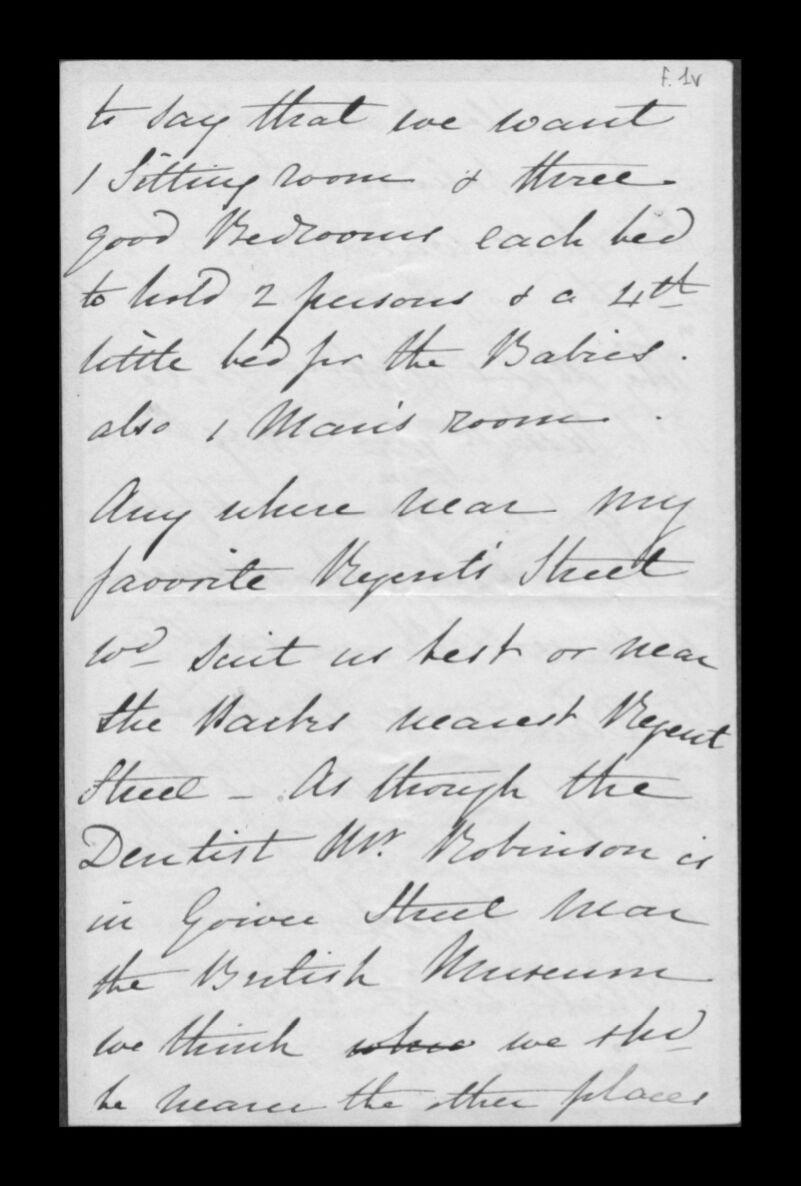 f. 1v
to say that we want
1 Sitting room & three
good Bedrooms each bed
to hold 2 persons & a 4th
little bed for the Babies.
also 1 Man's room.
Any where near my
favorite Regent's Street
wd suit us best or near
the Parks nearest Regent
Street - As though the
Dentist Mr. Robinson is
in Gower Street near
the British Museum
we think we shd
be nearer the other places